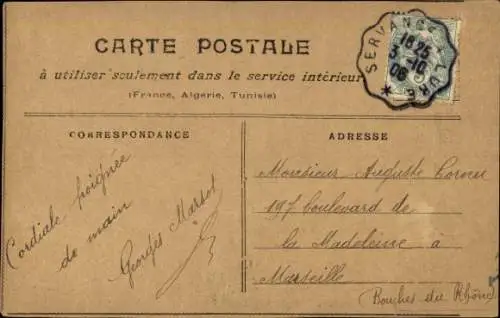 CARTE POSTALE
à utiliser seulement dans le service intérieur
(France, Algérie, Tunisie)
SERVANCE A LURE
18 25
3 -10
06
*
5
CORRESPONDANCE
ADRESSE
Cordiale poignée
de main
Georges Marsot
Monsieur Auguste
197 boulevard de
la Madeleine à
Marseille
Bouches du Rhône